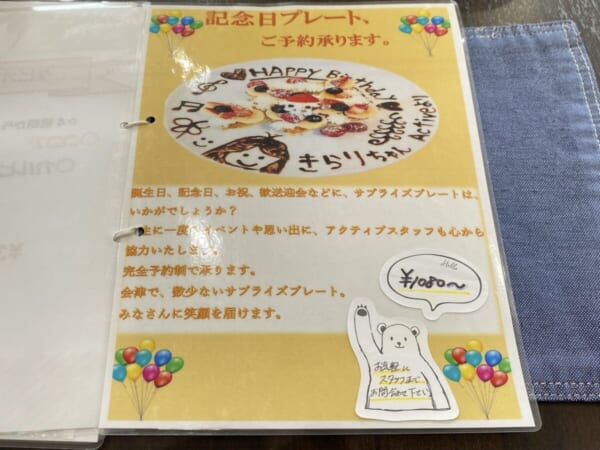 記念日プレート、
ご予約承ります。
HAPPY Birthday
Active!!
きらりちゃん
誕生日、記念日、お祝、歓送迎会などに、サプライズプレートは、
いかがでしょうか？
生に一度のイベントや思い出に、アクティブスタッフも心から
協力いたします。
完全予約制で承ります。
会津で、数少ないサプライズプレート。
みなさんに笑顔を届けます。
Hello
¥1080〜
お気軽に
スタッフまで
お問合わせ下さい